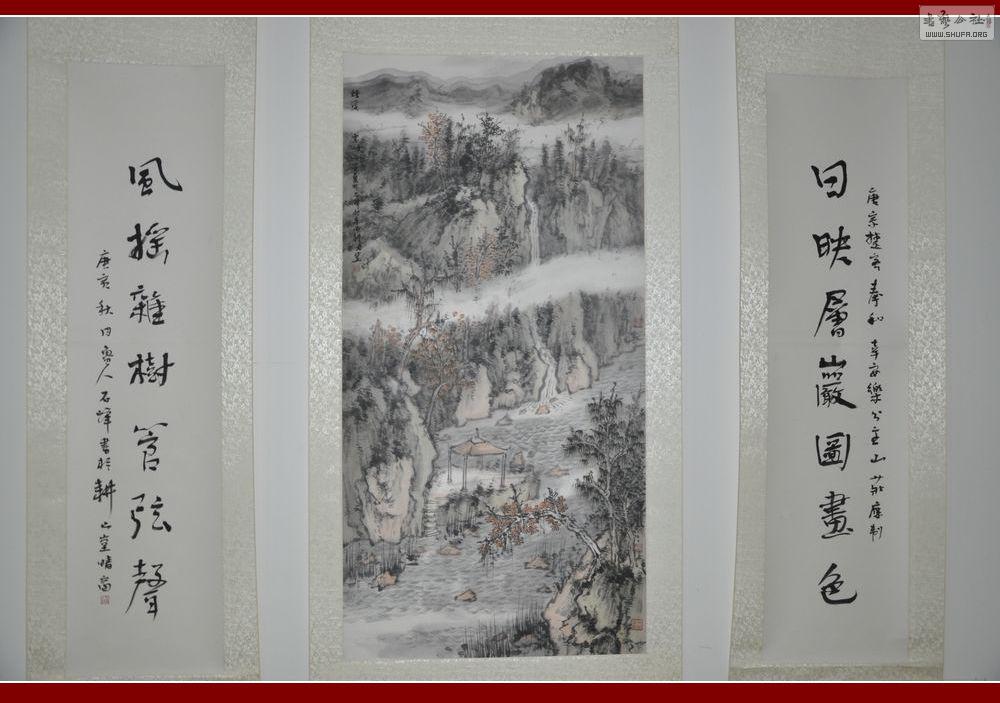 日映層巖圖畫色
唐宗楚客奉和幸安樂公主山莊應制
風搖雜樹管弦聲
庚亥秋日魯人石峰書於耕山堂晴窗
書藝公社
WWW.SHUFA.ORG